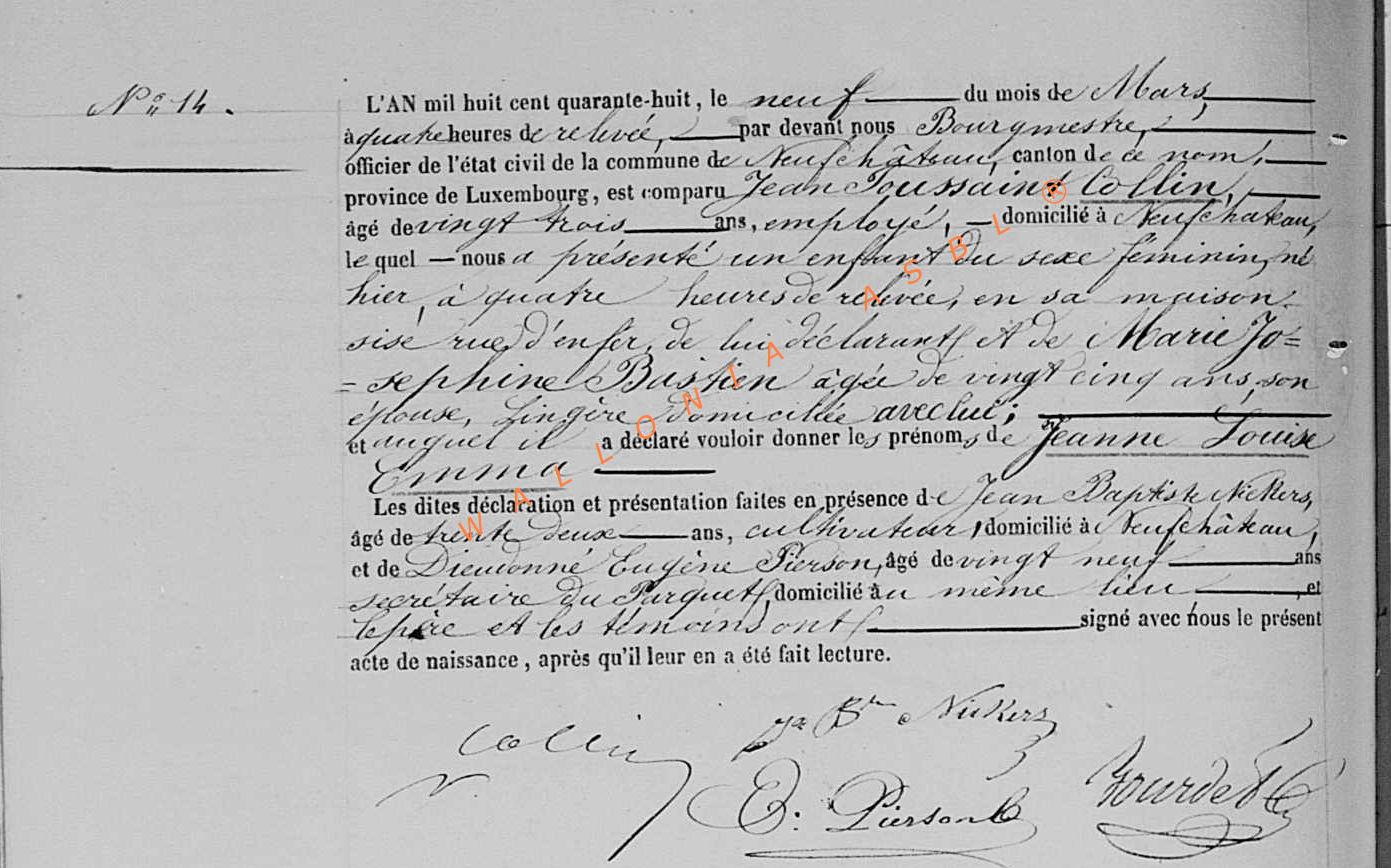 N° 14.
L'AN mil huit cent quarante-huit, le neuf du mois de Mars,
à quatre heures de relevée, par devant nous Bourgmestre,
officier de l'état civil de la commune de Neufchâteau, canton de ce nom,
province de Luxembourg, est comparu Jean Toussaint Collin,
âgé de vingt trois ans, employé, domicilié à Neufchateau,
le quel — nous a présenté un enfant du sexe féminin, né
hier, à quatre heures de relevée, en sa maison
sise rue d'enfer, de lui déclarant et de Marie Jo=
=sephine Bastien âgée de vingt cinq ans, son
épouse, Lingère domiciliée avec lui;
et auquel il a déclaré vouloir donner les prénoms de Jeanne Louise
Emma
Les dites déclaration et présentation faites en présence de Jean Baptiste Nickers,
âgé de trente deux ans, cultivateur, domicilié à Neufchâteau,
et de Dieudonné Eugène Pierson, âgé de vingt neuf ans
secrétaire du Parquet, domicilié au même lieu, et
le père et les témoins ont signé avec nous le présent
acte de naissance, après qu'il leur en a été fait lecture.
Collin
Jn Bte Nickers
E. Pierson
Bourdet
WALLONIA ASBL ®